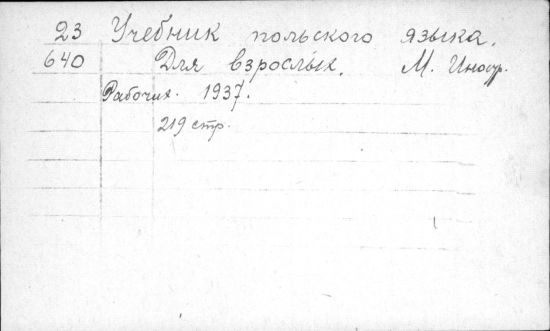 23 Учебник польского языка.
640 Для взрослых. М. Иностр.
Рабочих. 1937.
219 стр.